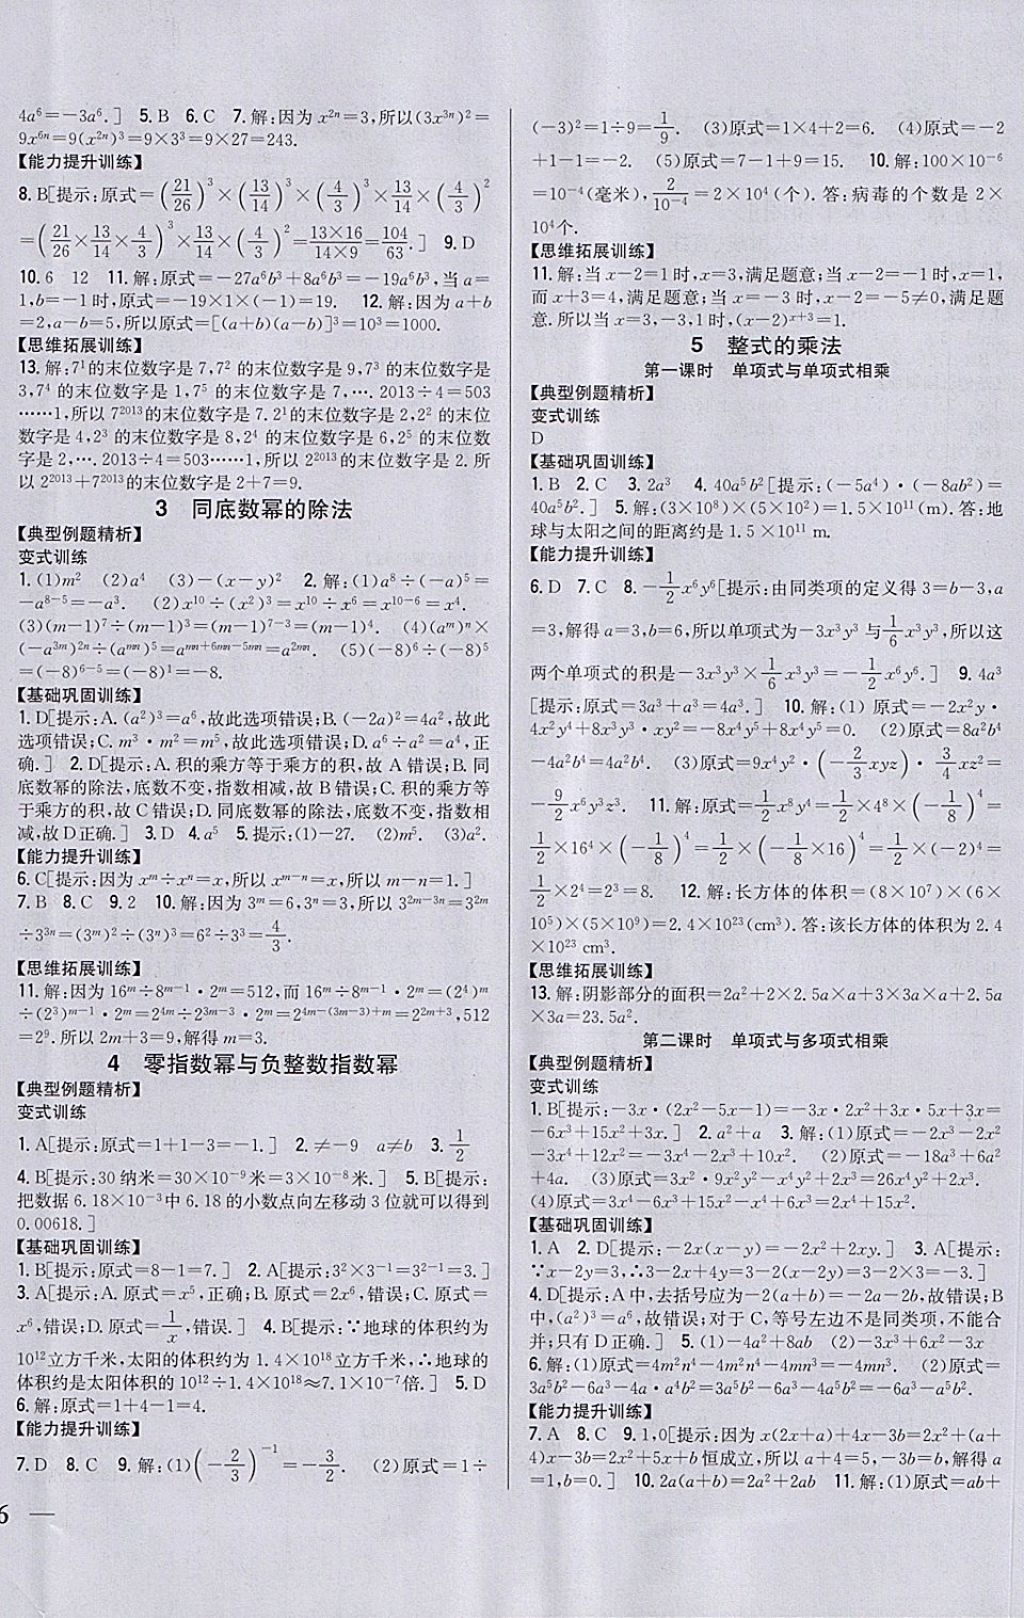 4a⁶=-3a⁶.] 5.B 6.C 7.解:因为 x²ⁿ=3,所以(3x³ⁿ)²=
9x⁶ⁿ=9(x²ⁿ)³=9×3³=9×27=243.
【能力提升训练】
8.B[提示:原式=(21/26)³×(13/14)³×(4/3)³×13/14×(4/3)²
=(21/26×13/14×4/3)³×13/14×(4/3)²=13×16/14×9=104/63.] 9.D
10.6 12 11.解:原式=-27a⁶b³+8a⁶b³=-19a⁶b³,当 a=
1,b=-1 时,原式=-19×1×(-1)=19. 12.解:因为 a+b
=2,a-b=5,所以原式=[(a+b)(a-b)]³=10³=1000.
【思维拓展训练】
13.解:7¹的末位数字是 7,7² 的末位数字是 9,7³ 的末位数字是
3,7⁴ 的末位数字是 1,7⁵ 的末位数字是 7,….2013÷4=503
……1,所以 7²⁰¹³的末位数字是 7.2¹的末位数字是 2,2² 的末位
数字是 4,2³ 的末位数字是 8,2⁴ 的末位数字是 6,2⁵ 的末位数
字是 2,….2013÷4=503……1,所以 2²⁰¹³的末位数字是 2.所
以 2²⁰¹³+7²⁰¹³的末位数字是 2+7=9.
3 同底数幂的除法
【典型例题精析】
变式训练
1.(1)m² (2)a⁴ (3)-(x-y)² 2.解:(1)a⁸÷(-a)⁵=
-a⁸⁻⁵=-a³. (2)x¹⁰÷(x²)³=x¹⁰÷x⁶=x¹⁰⁻⁶=x⁴.
(3)(m-1)⁷÷(m-1)³=(m-1)⁷⁻³=(m-1)⁴. (4)(aᵐ)ⁿ×
(-a³ᵐ)²ⁿ÷(aᵐⁿ)⁵=aᵐⁿ⁺⁶ᵐⁿ⁻⁵ᵐⁿ=a²ᵐⁿ. (5)(-8)⁶÷(-8)⁵
=(-8)⁶⁻⁵=(-8)¹=-8.
【基础巩固训练】
1.D[提示:A.(a²)³=a⁶,故此选项错误;B.(-2a)²=4a²,故此
选项错误;C.m³·m²=m⁵,故此选项错误;D.a⁶÷a²=a⁴,正
确.] 2.D[提示:A.积的乘方等于乘方的积,故 A 错误;B.同
底数幂的除法,底数不变,指数相减,故 B 错误;C.积的乘方等
于乘方的积,故 C 错误;D.同底数幂的除法,底数不变,指数相
减,故 D 正确.] 3.D 4.a⁵ 5.提示:(1)-27. (2)m⁵. (3)a².
【能力提升训练】
6.C[提示:因为 xᵐ÷xⁿ=x,所以 xᵐ⁻ⁿ=x,所以 m-n=1.]
7.B 8.C 9.2 10.解:因为 3ᵐ=6,3ⁿ=3,所以 3²ᵐ⁻³ⁿ=3²ᵐ
÷3³ⁿ=(3ᵐ)²÷(3ⁿ)³=6²÷3³=4/3.
【思维拓展训练】
11.解:因为 16ᵐ÷8ᵐ⁻¹·2ᵐ=512,而 16ᵐ÷8ᵐ⁻¹·2ᵐ=(2⁴)ᵐ
÷(2³)ᵐ⁻¹·2ᵐ=2⁴ᵐ÷2³ᵐ⁻³·2ᵐ=2⁴ᵐ⁻⁽³ᵐ⁻³⁾⁺ᵐ=2²ᵐ⁺³,512
=2⁹.所以 2m+3=9,解得 m=3.
4 零指数幂与负整数指数幂
【典型例题精析】
变式训练
1.A[提示:原式=1+1-3=-1.] 2.≠-9 a≠b 3.1/2
4.B[提示:30 纳米=30×10⁻⁹米=3×10⁻⁸米.] 5.B[提示:
把数据 6.18×10⁻³中 6.18 的小数点向左移动 3 位就可以得到
0.00618.]
【基础巩固训练】
1.B[提示:原式=8-1=7.] 2.A[提示:3²×3⁻¹=3²⁻¹=3.]
3.A[提示:A.原式=x⁵,正确;B.原式=2x⁶,错误;C.原式=
x⁶,错误;D.原式=1/x,错误.] 4.B[提示:∵地球的体积约为
10¹²立方千米,太阳的体积约为 1.4×10¹⁸立方千米,∴地球的
体积约是太阳体积的 10¹²÷1.4×10¹⁸≈7.1×10⁻⁷倍.] 5.D
6.解:原式=1+4-1=4.
【能力提升训练】
7.D 8.C 9.解:(1)(-2/3)⁻¹=-3/2. (2)原式=1÷
6 —
(-3)²=1÷9=1/9. (3)原式=1×4+2=6. (4)原式=-2
+1-1=-2. (5)原式=7-1+9=15. 10.解:100×10⁻⁶
=10⁻⁴(毫米),2/10⁻⁴=2×10⁴(个).答:病毒的个数是 2×
10⁴个.
【思维拓展训练】
11.解:当 x-2=1 时,x=3,满足题意;当 x-2=-1 时,x=1,
而 x+3=4,满足题意;当 x=-3 时,x-2=-5≠0,满足题
意.所以当 x=3,-3,1 时,(x-2)ˣ⁺³=1.
5 整式的乘法
第一课时 单项式与单项式相乘
【典型例题精析】
变式训练
D
【基础巩固训练】
1.B 2.C 3.2a³ 4.40a⁵b²[提示:(-5a⁴)·(-8ab²)=
40a⁵b².] 5.解:(3×10⁸)×(5×10²)=1.5×10¹¹(m).答:地
球与太阳之间的距离约是 1.5×10¹¹ m.
【能力提升训练】
6.D 7.C 8.-1/2x⁶y⁶[提示:由同类项的定义得 3=b-3,a
=3,解得 a=3,b=6,所以单项式为-3x³y³ 与1/6x³y³,所以这
两个单项式的积是-3x³y³×1/6x³y³=-1/2x⁶y⁶.] 9.4a³
[提示:原式=3a³+a³=4a³.] 10.解:(1) 原式=-2x²y·
4x²y⁴+8x³y³·xy²=-8x⁴y⁵+8x⁴y⁵=0. (2)原式=8a²b⁴
-4a²b⁴=4a²b⁴. (3)原式=9x⁴y²·(-2/3xyz)·3/4xz²=
-9/2x⁶y³z³. 11.解:原式=1/2x⁸y⁴=1/2×4⁸×(-1/8)⁴=
1/2×16⁴×(-1/8)⁴=1/2×(-1/8×16)⁴=1/2×(-2)⁴=
1/2×2⁴=2³=8. 12.解:长方体的体积=(8×10⁷)×(6×
10⁵)×(5×10⁹)=2.4×10²³(cm³).答:该长方体的体积为 2.4
×10²³ cm³.
【思维拓展训练】
13.解:阴影部分的面积=2a²+2×2.5a×a+3×3a×a+2.5a
×3a=23.5a².
第二课时 单项式与多项式相乘
【典型例题精析】
变式训练
1.B[提示:-3x·(2x²-5x-1)=-3x·2x²+3x·5x+3x=
-6x³+15x²+3x.] 2.a²+a 3.解:(1)原式=-2x³-2x²
-3x⁴+12x²=-3x⁴-2x³+10x². (2)原式=-18a³+6a²
+4a. (3)原式=3x²·9x²y²-x⁴y²+2x³=26x⁴y²+2x³.
(4)原式=3x⁴-6x³+15x²-x⁴+6x³=2x⁴+15x².
【基础巩固训练】
1.A 2.D[提示:-2x(x-y)=-2x²+2xy.] 3.A[提示:
∵x-2y=3,∴3-2x+4y=3-2(x-2y)=3-2×3=-3.]
4.D[提示:A 中,去括号应为-2(a+b)=-2a-2b,故错误;B
中,(a²)³=a⁶,故错误;对于 C,等号左边不是同类项,不能合
并;只有 D 正确.] 5.(1)-4a²+8ab (2)-3x³+6x²-3x
6.解:(1)原式=4m²n⁴-4m²n⁴-4mn³=-4mn³. (2)原式=
3a⁵b²-6a³-4a·a⁴b²=3a⁵b²-6a³-4a⁵b²=-6a³-a⁵b².
【能力提升训练】
7.A 8.C 9.1,0[提示:因为 x(2x+a)+4x-3b=2x²+(a+
4)x-3b=2x²+5x+b 恒成立,所以 a+4=5,-3b=b,解得 a
=1,b=0.] 10.2a(a+b)=2a²+2ab 11.解:(1)原式=ab+